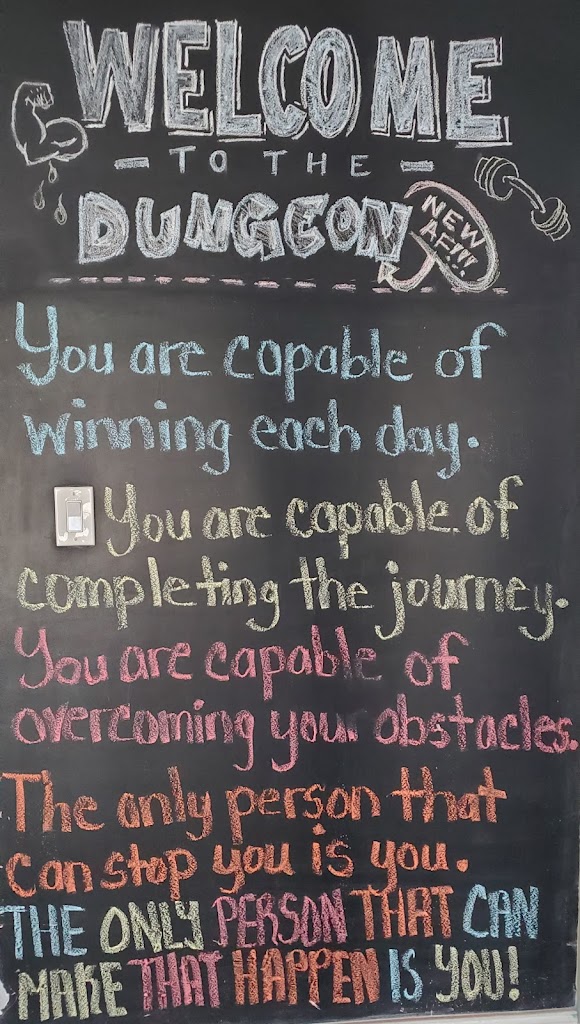 WELCOME
- TO THE -
DUNGEON
NEW
AF!!!
You are capable of
winning each day.
You are capable of
completing the journey.
You are capable of
overcoming your obstacles.
The only person that
can stop you is you.
THE ONLY PERSON THAT CAN
MAKE THAT HAPPEN IS YOU!